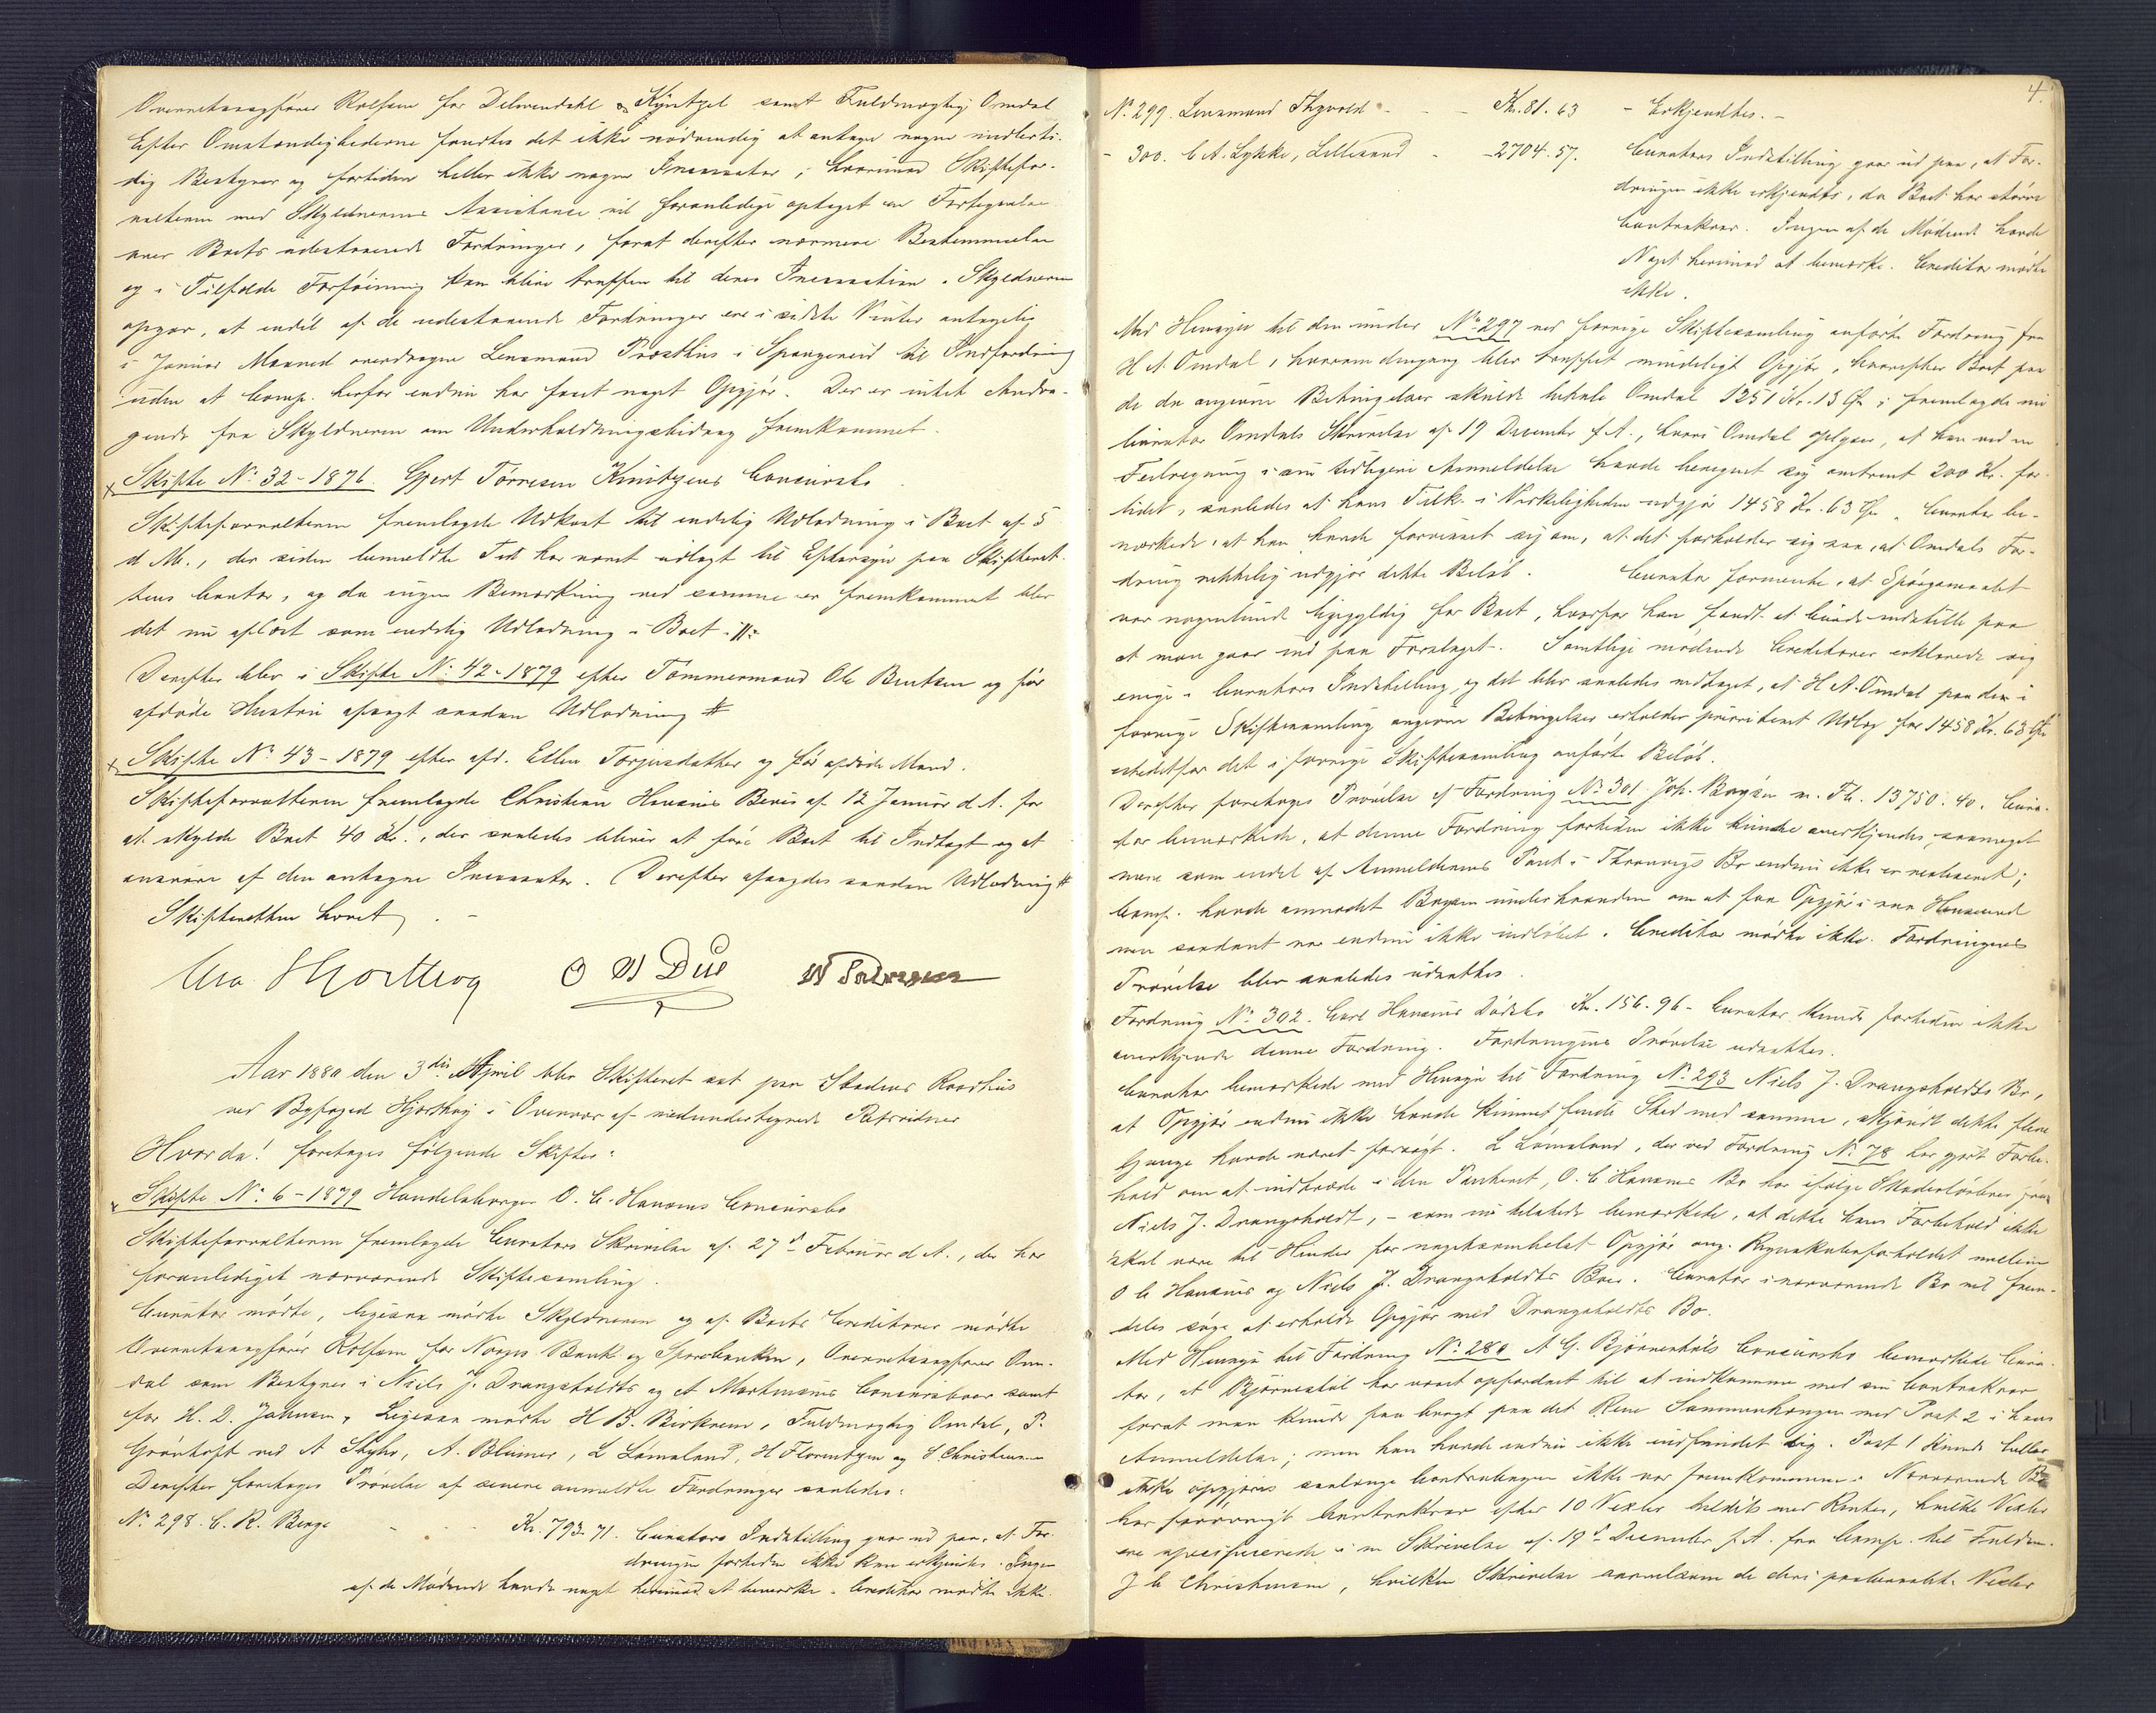 Overretssagfører Rolfsen for Delwendahl & Küntzel samt Fuldmægtig Omdal
Efter Omstændighederne fandtes det ikke nødvendig at antage nogen midlerti-
dig Bestyrer og fortiden heller ikke nogen Incassator, hvorimod Skiftefor-
valteren med Skyldnerens Assistance vil foranledige optaget en Fortegnelse
over Boets udestaaende Fordringer, forat derefter nærmere Bestemmelse
og i Tilfælde Forføining kan blive truffen til deres Incassation. Skyldneren
opgav, at endel af de udestaaende Fordringer ere i sidste Vinter antagelig
i Januar Maaned overdragne Lensmand Præsthus i Spangereid til Indfordring
uden at Comp. herfor endnu har faaet noget Opgjør. Der er intet Andra-
gende fra Skyldneren om Underholdningsbidrag fremkommet.
Skifte No 32-1876. Gjert Tørresen Knutzens Concursbo
Skifteforvalteren fremlagde Udkast til endelig Udlodning i Boet af 5
d. M., der siden bemeldte Tid har været udlagt til Eftersyn paa Skifteret-
tens Contor, og da ingen Bemærkning ved samme er fremkommet blev
det nu aflæst som endelig Udlodning i Boet.
Derefter blev i Skifte No 42-1879 efter Tømmermand Ole Bentsen og før
afdøde Hustru afsagt saadan Udlodning #
Skifte No 43-1879 efter afd. Ellen Torjusdatter og før afdøde Mand.
Skifteforvalteren fremlagde Christian Hansens Bevis af 12 Januar d. A. for
at skylde Boet 40 Kr., der saaledes bliver at føre Boet til Indtægt og at
ansvare af den antagne Incassator. Derefter afsagdes saadan Udlodning #
Skifteretten hævet.
O W Due
Aar 1880 den 3die April blev Skifteret sat paa Stadens Raadhus
ved Byfoged Hjorthøy i Overvær af medundertegnede Retsvidner
Hvorda! foretoges følgende Skifter:
Skifte No 6-1879 Handelsborger O. C. Hansens Concursbo
Skifteforvalteren fremlagde Curators Skrivelse af 27de Februar d. A., der har
foranlediget nærværende Skiftesamling.
Curator mødte, ligesaa mødte Skyldneren og af Boets Creditorer mødte
Overretssagfører Rolfsen for Norges Bank og Sparebanken, Overretssagfører Om-
dal som Bestyrer i Niels J. Drangsholdts og A. Mortensens Concursboer samt
for H. D. Johnsen, Ligesaa mødte H B. Birkrem, Fuldmægtig Omdal, P.
Grønhoft ved A Skyhr, A. Blumer, L Lømsland, H Florentzen og S Christensen
Derefter foretoges Prøvelse af senere anmeldte Fordringer saaledes:
No 298. C. R. Berge - - - Kr. 793. 71. Curators Indstilling gaar ud paa, at For-
dringen fortiden ikke kan erkjendes. Ingen
af de Mødende havde noget herimod at bemærke. Creditor mødte ikke.
4.
No 299. Lensmand Thyvold - - - Kr. 81. 63 - Erkjendtes. -
- 300. C A. Lykke, Lillesand - - 2704. 57. Curators Indstilling gaar ud paa, at For-
dringen ikke erkjendes, da Boet har større
Contrakrav. Ingen af de Mødende havde
Noget herimod at bemærke. Creditor mødte
ikke.
Med Hensyn til den under No 297 ved forrige Skiftesamling anførte Fordring fra
H A. Omdal, hvorom dengang blev truffet mindeligt Opgjør, hvorefter Boet paa
de da angivne Betingelser skulde betale Omdal 1251 Kr. 13 Øre, fremlagde nu
Curator Omdals Skrivelse af 19 December f. A., hvori Omdal oplyser, at han ved en
Feilregning i sin tidligere Anmeldelse havde beregnet sig omtrent 200 Kr. for
lidet, saaledes at hans Tilk. i Virkeligheden udgjør 1458 Kr. 63 Øre. Curator be-
mærkede, at han havde forvisset sig om, at det forholder sig saa, at Omdals For-
dring rettelig udgjør dette Beløb. Curator formente, at Spørgsmaalet
var nogenlunde ligegyldig for Boet, hvorfor han fandt at burde indstille paa
at man gaar ind paa Forslaget. Samtlige mødende Creditorer erklærede sig
enige i Curators Indstilling, og det blev saaledes vedtaget, at H A. Omdal paa de i
forrige Skiftesamling angivne Betingelser erholder prioriteret Udlæg for 1458 Kr. 63 Øre
istedetfor det i forrige Skiftesamling anførte Beløb.
Derefter foretoges Prøvelse af Fordring No 301 Joh. Brysen Kr. 13750. 40. Cura-
tor bemærkede, at denne Fordring fortiden ikke kunde anerkjendes, saameget
mere som endel af Anmelderens Pant i Bo endnu ikke er realiseret;
Comp. havde anmodet Brysen underhaanden om at faa Opgjør i saa Henseende
men saadant var endnu ikke indløbet. Creditor mødte ikke. Fordringens
Prøvelse blev saaledes udsattes.
Fordring No 302. Carl Hansens Dødsbo Kr. 156. 96 - Curator kunde fortiden ikke
anerkjende denne Fordring. Fordringens Prøvelse udsattes.
Curator bemærkede med Hensyn til Fordring No 293 Niels J. Drangsholdts Bo,
at Opgjør endnu ikke havde kunnet finde Sted med samme, skjøndt dette flere
Gange havde været forsøgt. L Lømsland, der ved Fordring No 78 har gjort Forbe-
hold om at indtræde i den Panteret, O. C Hansens Bo har ifølge Skadesløsbrev fra
Niels J. Drangsholdt, - som nu tilstede bemærkede, at dette hans Forbehold ikke
skal være til Hinder for nogetsomhelst Opgjør ang. Regnskabsforholdet mellem
O C Hansens og Niels J. Drangsholdts Boer. Curator i nærværende Bo vil frem-
deles søge at erholde Opgjør med Drangsholdts Bo.
Med Hensyn til Fordring No 280 A G. Bjørnestøls Concursbo bemærkede Cura-
tor, at Bjørnestøl har været opfordret til at indkomme med sin Contrakrav
forat man kunde faa bragt paa det Rene Sammenhængen med Post 2 i hans
Anmeldelse; men han havde endnu ikke indfundet sig. Post 1 kunde heller
ikke opgjøres saalænge Contrabogen ikke var fremkommen. Nærværende Bo
har forøvrigt Contrakrav efter 10 Vexler tildels med Renter, hvilke Vexler
ere specificerede i en Skrivelse af 19de December f. A. fra Comp. til Fuldm.
J C Christensen, hvilken Skrivelse saavelsom de deri paaberaabte Vexler